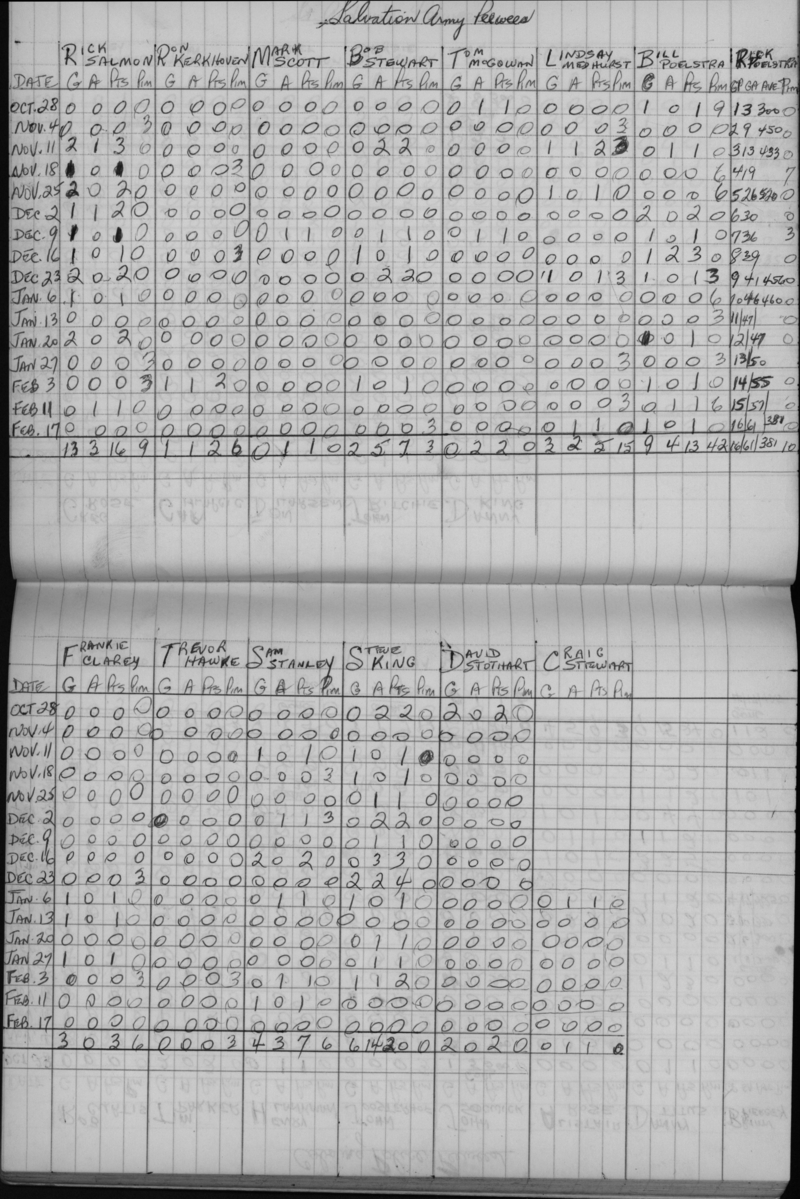 Salvation Army Peewees
RICK SALMON RON KERKHOVEN MARK SCOTT BOB STEWART TOM McGOWAN LINDSAY MEDHURST BILL POELSTRA RICK POELSTRA
DATE G A Pts Pim G A Pts Pim G A Pts Pim G A Pts Pim G A Pts Pim G A Pts Pim G A Pts Pim GP GA AVE Pim
OCT.28 0 0 0 0 0 0 0 0 0 0 0 0 0 0 0 0 0 1 1 0 0 0 0 0 1 0 1 9 1 13 300 0
NOV.4 0 0 0 3 0 0 0 0 0 0 0 0 0 0 0 0 0 0 0 0 0 0 0 3 0 0 0 0 2 9 450 0
NOV.11 2 1 3 0 0 0 0 0 0 0 0 0 0 2 2 0 0 0 0 0 1 1 2 3 0 1 1 0 3 13 433 0
NOV.18 1 0 1 0 0 0 0 3 0 0 0 0 0 0 0 0 0 0 0 0 0 0 0 0 0 0 0 6 4 19 7
NOV.25 2 0 2 0 0 0 0 0 0 0 0 0 0 0 0 0 0 0 0 0 1 0 1 0 0 0 0 6 5 26 520 0
DEC 2 1 1 2 0 0 0 0 0 0 0 0 0 0 0 0 0 0 0 0 0 0 0 0 0 2 0 2 0 6 30 0
DEC.9 1 0 1 0 0 0 0 0 0 1 1 0 0 1 1 0 0 1 1 0 0 0 0 0 1 0 1 0 7 36 3
DEC.16 1 0 1 0 0 0 0 3 0 0 0 0 1 0 1 0 0 0 0 0 0 0 0 0 1 2 3 0 8 39 0
DEC 23 2 0 2 0 0 0 0 0 0 0 0 0 0 2 2 0 0 0 0 0 1 0 1 3 1 0 1 3 9 41 456 0
JAN.6 1 0 1 0 0 0 0 0 0 0 0 0 0 0 0 0 0 0 0 0 0 0 0 0 0 0 0 6 10 46 460 0
JAN.13 0 0 0 0 0 0 0 0 0 0 0 0 0 0 0 0 0 0 0 0 0 0 0 0 0 0 0 3 11/47/ 0
JAN.20 2 0 2 0 0 0 0 0 0 0 0 0 0 0 0 0 0 0 0 0 0 0 0 0 0 1 0 12/47 0
JAN 27 0 0 0 3 0 0 0 0 0 0 0 0 0 0 0 0 0 0 0 0 0 0 0 3 0 0 0 3 13/50
FEB 3 0 0 0 3 1 1 2 0 0 0 0 0 1 0 1 0 0 0 0 0 0 0 0 0 1 0 1 0 14/55 0
FEB 11 0 1 1 0 0 0 0 0 0 0 0 0 0 0 0 0 0 0 0 0 0 0 0 3 0 1 1 6 15/57/ 0
FEB.17 0 0 0 0 0 0 0 0 0 0 0 0 0 0 0 3 0 0 0 0 0 1 1 0 1 0 1 0 16/61 381 0
13 3 16 9 1 1 2 6 0 1 1 0 2 5 7 3 0 2 2 0 3 2 5 15 9 4 13 42 16/61/381 10
FRANKIE CLAREY TREVOR HAWKE SAM STANLEY STEVE KING DAVID STOTHART CRAIG STEWART
DATE G A Pts Pim G A Pts Pim G A Pts Pim G A Pts Pim G A Pts Pim G A Pts Pim
OCT 28 0 0 0 0 0 0 0 0 0 0 0 0 0 2 2 0 2 0 2 0
NOV.4 0 0 0 0 0 0 0 0 0 0 0 0 0 0 0 0 0 0 0 0
NOV.11 0 0 0 0 0 0 0 0 1 0 1 0 1 0 1 0 0 0 0 0
NOV.18 0 0 0 0 0 0 0 0 0 0 0 3 1 0 1 0 0 0 0 0
NOV.25 0 0 0 0 0 0 0 0 0 0 0 0 0 1 1 0 0 0 0 0
DEC.2 0 0 0 0 0 0 0 0 0 1 1 3 0 2 2 0 0 0 0 0
DEC.9 0 0 0 0 0 0 0 0 0 0 0 0 0 1 1 0 0 0 0 0
DEC.16 0 0 0 0 0 0 0 0 2 0 2 0 0 3 3 0 0 0 0 0
DEC 23 0 0 0 3 0 0 0 0 0 0 0 0 2 2 4 0 0 0 0 0
JAN.6 1 0 1 0 0 0 0 0 0 1 1 0 1 0 1 0 0 0 0 0 0 1 1 0
JAN.13 1 0 1 0 0 0 0 0 0 0 0 0 0 0 0 0 0 0 0 0 0 0 0 0
JAN.20 0 0 0 0 0 0 0 0 0 0 0 0 0 1 1 0 0 0 0 0 0 0 0 0
JAN 27 1 0 1 0 0 0 0 0 0 0 0 0 0 1 1 0 0 0 0 0 0 0 0 0
FEB.3 0 0 0 3 0 0 0 3 0 1 1 0 1 1 2 0 0 0 0 0 0 0 0 0
FEB.11 0 0 0 0 0 0 0 0 1 0 1 0 0 0 0 0 0 0 0 0 0 0 0 0
FEB.17 0 0 0 0 0 0 0 0 0 0 0 0 0 0 0 0 0 0 0 0 0 0 0 0
3 0 3 6 0 0 0 3 4 3 7 6 6 14 20 0 2 0 2 0 0 1 1 0